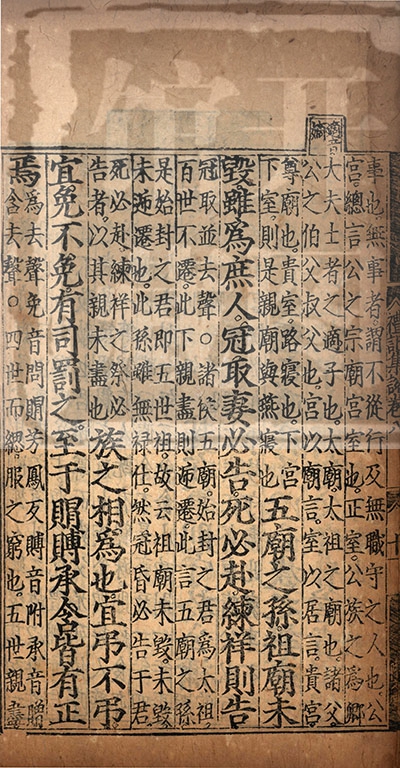 禮記集說卷八
十
適音
嫡
事也無事者謂不從行及無職守之人也公
宮總言公之宗廟宮室也正室公族之為卿
大夫士者之適子也太廟太祖之廟也諸父
公之伯父叔父也宮以廟言室以居言貴宮
尊廟也貴室路寢也下宮
下室則是親廟與燕寢也
五廟之孫祖廟未
毀雖為庶人冠取妻必告死必赴練祥則告
冠取並去聲○諸侯五廟始封之君為太祖
百世不遷此下親盡則逓遷此言五廟之孫
是始封之君即五世祖故云祖廟未毀未毀
未逓遷也此孫雖無禄仕然冠昏必告于君
死必赴練祥之祭必
告者以其親未盡也
族之相為也宜弔不弔
宜免不免有司罰之至于賵賻承含皆有正
焉
為去聲免音問賵芳鳳反賻音附承音贈
含去聲○四世而緦服之窮也五世親盡